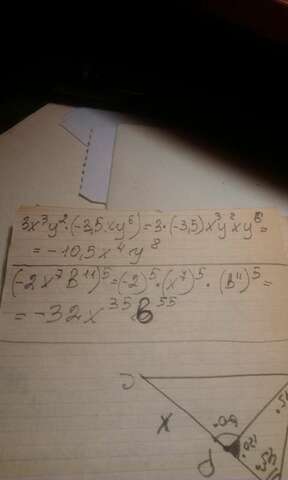 3x³y²·(-3,5·xy⁶)=3·(-3,5)x³y²xy⁶=
=-10,5x⁴·y⁸
(-2x⁷b¹¹)⁵=(-2)⁵·(x⁷)⁵·(b¹¹)⁵=
=-32x³⁵b⁵⁵
C
X
60°
120°
P